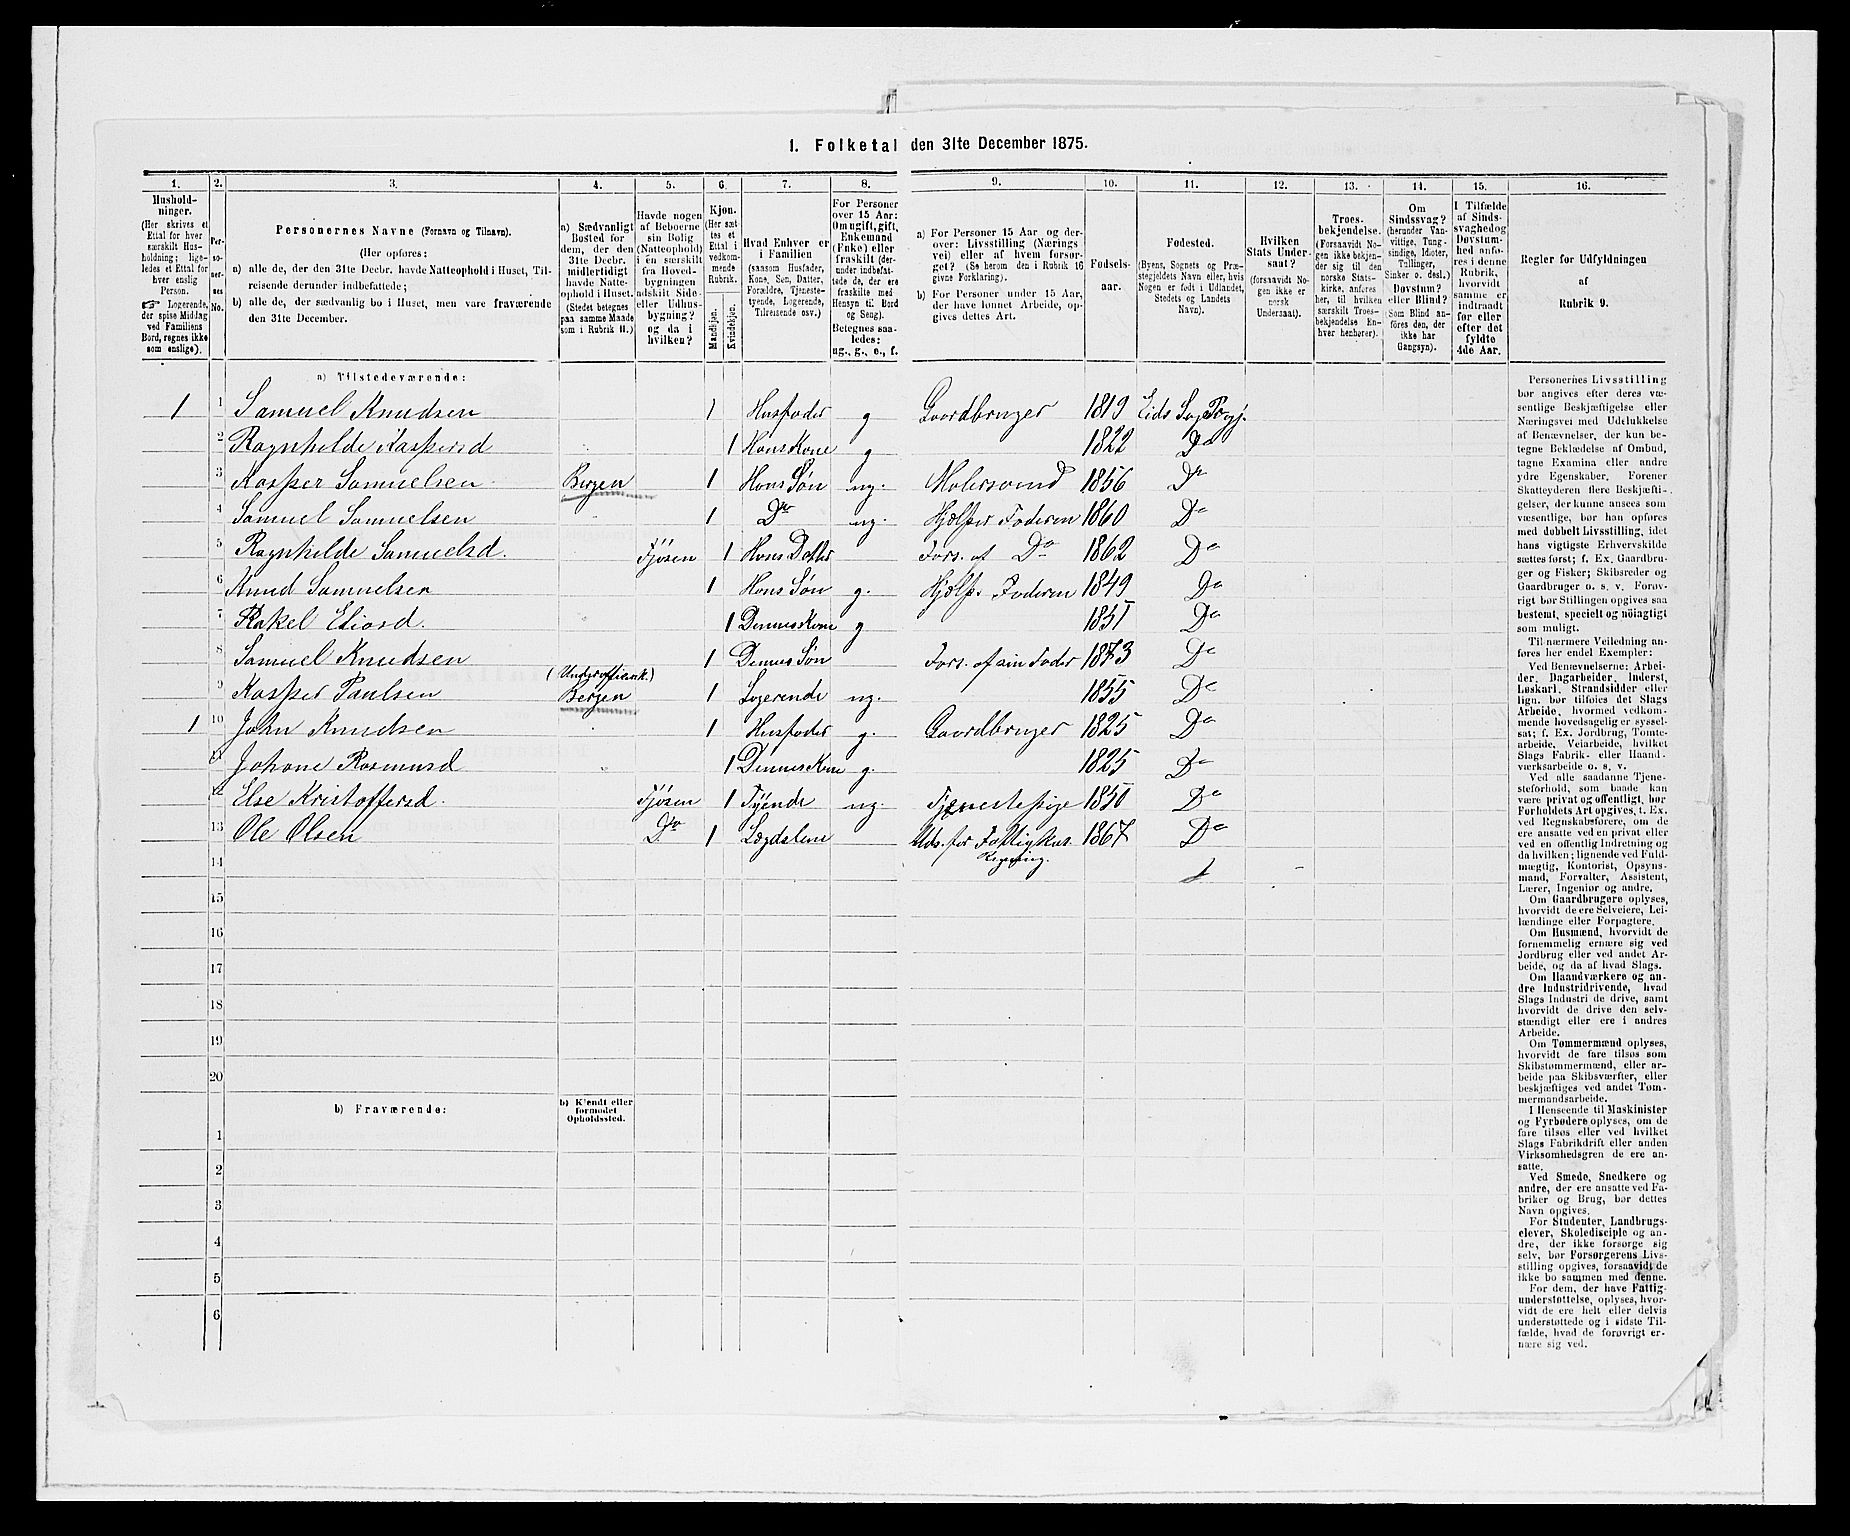 1. Folketal den 31te December 1875.
1. 2. 3. 4. 5. 6. 7. 8. 9. 10. 11. 12. 13. 14. 15. 16.
Hushold-
ninger.
(Her skrives et
Ettal for hver
særskilt Hus-
holdning; lige-
ledes et Ettal for
hver enslig
Person.
☞ Logerende,
der spise Middag
ved Familiens
Bord, regnes ikke
som enslige).
Per-
soner-
nes
No.
Personernes Navne (Fornavn og Tilnavn).
(Her opføres:
a) alle de, der den 31te Decbr. havde Natteophold i Huset, Til-
reisende derunder indbefattede;
b) alle de, der sædvanlig bo i Huset, men vare fraværende
den 31te December.
a) Sædvanligt
Bosted for
dem, der den
31te Decbr.
midlertidigt
havde Natte-
ophold i Huset.
(Stedet betegnes
paa samme Maade
som i Rubrik 11.)
Havde nogen
af Beboerne
sin Bolig
(Natteophold)
i en særskilt
fra Hoved-
bygningen
adskilt Side-
eller Udhus-
bygning?
og da i
hvilken?
Kjøn.
(Her sæt-
tes et
Ettal i
vedkom-
mende
Rubrik.
Mandkjøn.
Kvindekjøn.
Hvad Enhver er
i Familien
(saasom Husfader,
Kone, Søn, Datter,
Forældre, Tjeneste-
tyende, Logerende,
Tilreisende osv.)
For Personer
over 15 Aar:
Om ugift, gift,
Enkemand
(Enke) eller
fraskilt (der-
under indbefat-
tede de, der ere
fraskilte med
Hensyn til Bord
og Seng).
Betegnes saa-
ledes:
ug., g., e., f.
a) For Personer 15 Aar og der-
over: Livsstilling (Nærings
vei) eller af hvem forsør-
get? (Se herom den i Rubrik 16
givne Forklaring).
b) For Personer under 15 Aar,
der have lønnet Arbeide, op-
gives dettes Art.
Fødsels-
aar.
Fødested.
(Byens, Sognets og Præ-
stegjeldets Navn eller, hvis
Nogen er født i Udlandet,
Stedets og Landets
Navn).
Hvilken
Stats Under-
saat?
(forsaavidt No-
gen ikke er
norsk
Undersaat).
Troes-
bekjendelse.
(Forsaavidt No-
gen ikke bekjen-
der sig til den
norske Stats-
kirke, anføres
her, til hvilken
særskilt Troes-
bekjendelse En-
hver henhører).
Om
Sindssvag?
(herunder Van-
vittige, Tung-
sindige, Idioter,
Tullinger,
Sinker o. desl.)
Døvstum?
eller Blind?
(Som Blind an-
føres den, der
ikke har
Gangsyn).
I Tilfælde
af Sinds-
svaghed og
Døvstum-
hed anfø-
res i denne
Rubrik,
hvorvidt
samme er
indtraadt
før eller
efter det
fyldte
4de Aar.
Regler for Udfyldningen
af
Rubrik 9.
a) Tilstedeværende:
1 1 Samuel Knudsen 1 Husfader g Gaardbruger 1819 Eids Sogn
2 Ragnhilde Kaspersd 1 Hans Kone g 1822 Do
3 Kasper Samuelsen Bergen 1 Hans Søn ug. Malersvend 1856 Do
4 Samuel Samuelsen 1 Do ug. Hjælper Faderen 1860 Do
5 Ragnhilde Samuelsd. Fjösen 1 Hans Datter Fors. af Do 1862 Do
6 Knud Samuelsen 1 Hans Søn g. Hjælp. Faderen 1849 Do
7 Rakel 1 Dennes Kone g 1851 Do
8 Samuel Knudsen 1 Dennes Søn Fors. af sin Fader 1873 Do
9 Kasper Paulsen Bergen 1 Logerende ug. 1855 Do
1 10 John Knudsen 1 Husfader g. Gaardbruger 1825 Do
11 Johane Rasmusd 1 Dennes Kone g. 1825 Do
12 Else Kristoffersd. Fjösen 1 Tyende ug. Tjenestepige 1850 Do
13 Ole Olsen Do 1 Lægdslem Und. for Fattigkas. 1867 Do
14
15
16
17
18
19
20
b) Fraværende:
b) Kjendt eller
formodet
Opholdssted.
1
2
3
4
5
6
Personernes Livsstilling
bør angives efter deres væ-
sentlige Beskjæftigelse eller
Næringsvei med Udelukkelse
af Benævnelser, der kun be-
tegne Beklædelse af Ombud,
tagne Examina eller andre
ydre Egenskaber. Forener
Skatteyderen flere Beskjæfti-
gelser, der kunne ansees som
væsentlige, bør han opføres
med dobbelt Livsstilling, idet
hans vigtigste Erhvervskilde
sættes først; f. Ex. Gaardbru-
ger og Fisker; Skibsreder og
Gaardbruger o. s. v. Forøv-
rigt bør Stillingen opgives saa
bestemt, specielt og nöiagtigt
som muligt.
Til nærmere Veiledning an-
føres her endel Exempler:
Ved Benævnelserne: Arbei-
der, Dagarbeider, Inderst,
Løskarl, Strandsidder eller
lign. bør tilføies det Slags
Arbeide, hvormed vedkom-
mende hovedsagelig er syssel-
sat; f. Ex. Jordbrug, Tomte-
arbeide, Veiarbeide, hvilket
Slags Fabrik- eller Haand-
værksarbeide o. s. v.
Ved alle saadanne Tjene-
steforhold, som baade kan
være privat og offentligt, bør
Forholdets Art opgives, t. Ex.
ved Regnskabsførere, om de
ere ansatte ved en privat eller
ved en offentlig Indretning og
da hvilken; lignende ved Fuld-
mægtig, Kontorist, Opsyns-
mand, Forvalter, Assistent,
Lærer, Ingeniør og andre.
Om Gaardbrugere oplyses,
hvorvidt de ere Selveiere, Lei-
lændinge eller Forpagtere.
Om Husmænd, hvorvidt de
fornemmelig ernære sig ved
Jordbrug eller ved andet Ar-
beide, og da af hvad Slags.
Om Haandværkere og an-
dre Industridrivende, hvad
Slags Industri de drive, samt
hvorvidt de drive den selv-
stændigt eller ere i andres
Arbeide.
Om Tømmermænd oplyses,
hvorvidt de fare tilsøs som
Skibstømmermænd, eller ar-
beide paa Skibsværfter, eller
beskjæftiges ved andet Tøm-
mermandsarbeide.
I Henseende til Maskinister
og Fyrbødere oplyses, om de
fare tilsøs eller ved hvilket
Slags Fabrikdrift eller anden
Virksomhedsgren de ere an-
satte.
Ved Smede, Snedkere og
andre, der ere ansatte ved Fa-
briker og Brug, bør dettes
Navn opgives.
For Studenter, Landbrugs-
elever, Skoledisciple og an-
dre, der ikke forsørge sig
selv, bør Forsørgerens Livs-
stilling opgives, forsaavidt de
ikke bo sammen med denne.
For dem, der have Fattig-
understøttelse, oplyses, hvor-
vidt de ere helt eller delvis
understøttede og i sidste Til-
fælde, hvad de forøvrigt er-
nære sig ved.